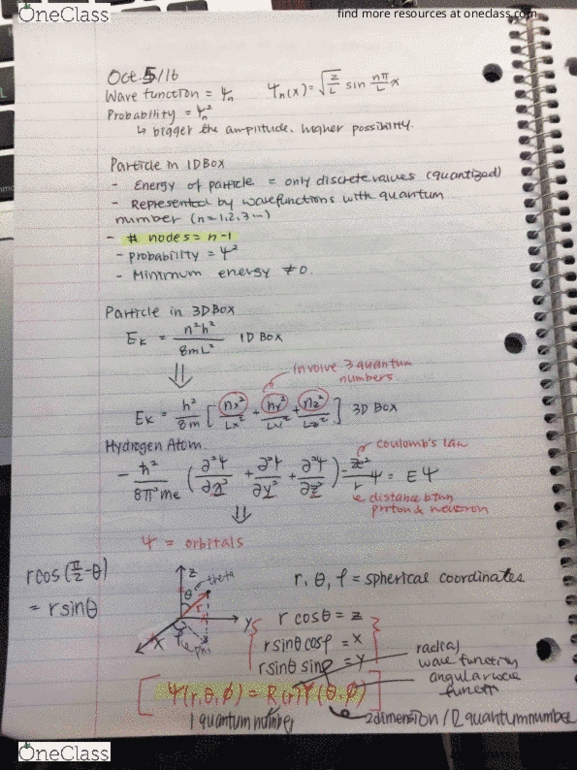 OneClass
find more resources at oneclass.com
Oct. 5/16
Wave function = Ψn   Ψn(x) = √(2/L) sin nπ/L x
Probability = Ψn²
↳ bigger the amplitude. higher possibility.
Particle in 1D Box
- Energy of particle = only discrete values (quantized)
- Represented by wavefunctions with quantum
number (n=1,2,3...)
- # nodes = n-1
- probability = Ψ²
- Minimum energy ≠ 0.
Particle in 3D Box
EK = n²h²/8mL²   1D Box
⇓
involve 3 quantum
numbers.
EK = h²/8m [nx²/Lx² + ny²/Ly² + nz²/Lz²]   3D BOX
Hydrogen Atom
coulomb's law
- ħ²/8π²me (∂²Ψ/∂x² + ∂²Ψ/∂y² + ∂²Ψ/∂z²) - e²/r Ψ = EΨ
distance btwn
proton & neutron
⇓
Ψ = orbitals
rcos(π/2-θ)
= rsinθ
z
θ
theta
r
y
x
phi
r, θ, φ = spherical coordinates
r cosθ = z
rsinθ cosφ = x
rsinθ sinφ = y
radial
wave function
angular wave
Ψ(r,θ,φ) = R(r)Y(θ,φ)
1 quantum number
2 dimension / 2 quantum number
OneClass